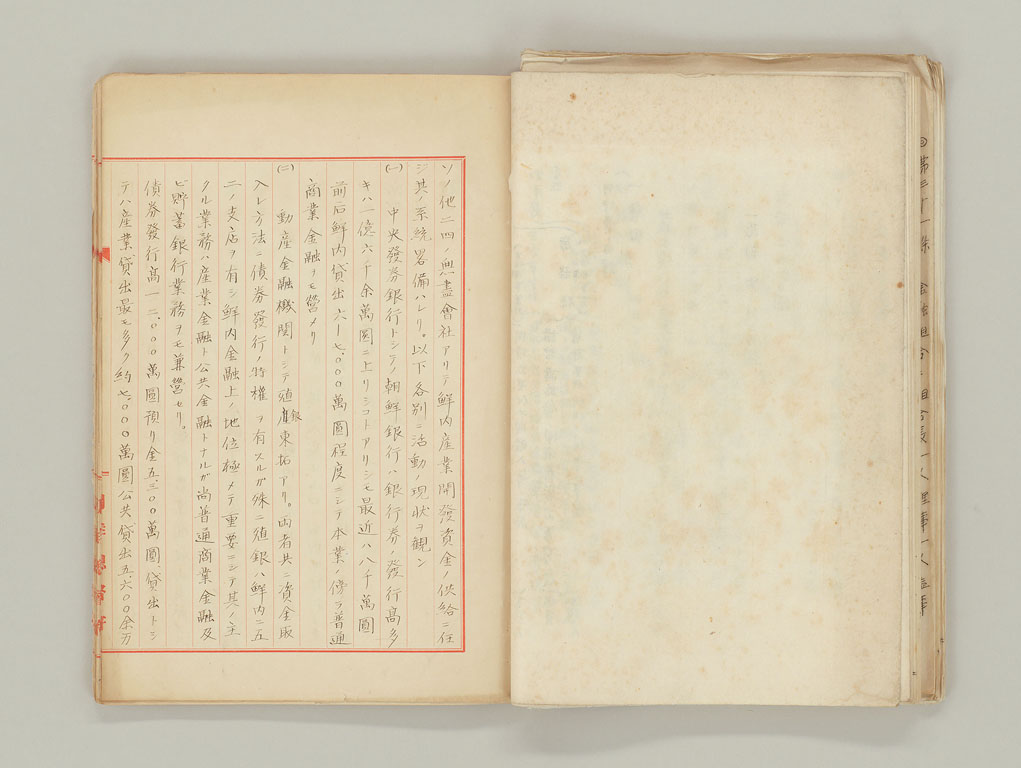 ソノ他二四ノ無盡會社アリテ鮮内産業開發資金ノ供給ニ任
ジ其ノ系統畧備ハレリ。以下各別ニ活動ノ現状ヲ観ン
(一) 中央發券銀行トシテノ朝鮮銀行ハ銀行券ノ發行髙多
キハ一億六千余萬圓ニ上リシコトアリシモ最近ハ八千萬圓
前后鮮内貸出六ー七、〇〇〇萬圓程度ニシテ本業ノ傍ラ普通
商業金融ヲモ營メリ
(二) 動産金融機関トシテ殖産銀東拓アリ。両者共ニ資金取
入レ方法ニ債券發行ノ特權ヲ有スルガ殊ニ殖銀ハ鮮内ニ五
二ノ支店ヲ有シ鮮内金融上ノ地位極メテ重要ニシテ其ノ主
クル業務ハ産業金融ト公共金融トナルガ尚普通商業金融及
ビ貯蓄銀行業務ヲモ兼營セリ。
債券發行髙一二、〇〇〇萬圓預リ金五、三〇〇萬圓貸出トシ
テハ産業貸出最モ多ク約七、〇〇〇萬圓公共貸出五、六〇〇余万